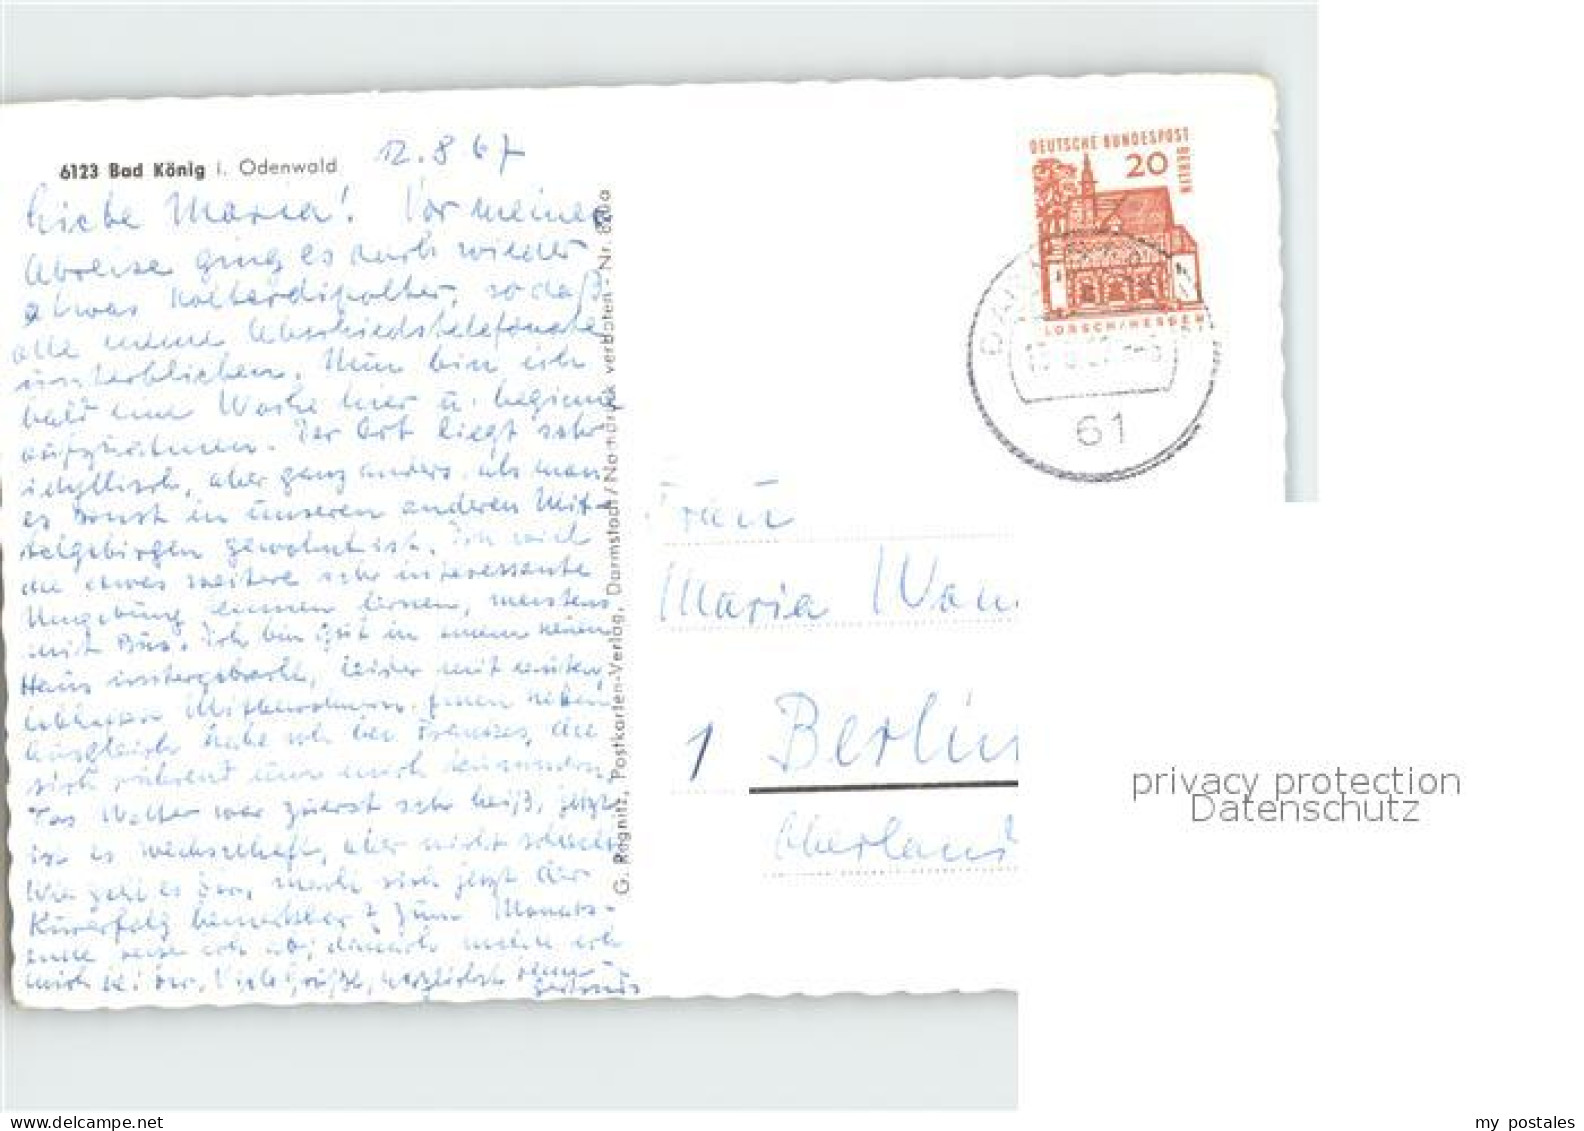 6123 Bad König i. Odenwald
12.8 67
Liebe Maria! Vor meiner
Abreise ging es durch wieder
etwas Kolterdipolter, so daß
alle meine Abschiedstelefonate
unterblieben. Nun bin ich
bald eine Woche hier u. beginne
aufzuatmen. Der Ort liegt sehr
idyllisch, aber ganz anders als man
es sonst in unseren anderen Mit-
telgebirgen gewohnt ist. Ich will
die etwas weitere sehr interessante
Umgebung kennen lernen, meistens
mit Bus. Ich bin gut in einem neuen
Haus untergebracht, leider mit
lebhaften Mitbewohnern. Einen
Ausgleich habe ich bei die
sich rührend um mich kümmern.
Das Wetter war zuerst sehr heiß, jetzt
ist es wechselhaft, aber nicht schlecht.
Wie geht es Dir, macht sich jetzt der
Kurerfolg bemerkbar? Zum Monats-
ende reise ich ab, danach melde ich
mich bei Dir. Viele Grüße, herzlichst Deine
Gertrud
G. Ragnitz, Postkarten-Verlag, Darmstadt / Nachdruck verboten - Nr. 820a
DEUTSCHE BUNDESPOST
BERLIN
20
LORSCH/HESSEN
61
Frau
Maria
1 Berlin
Oberland
privacy protection
Datenschutz
my postales